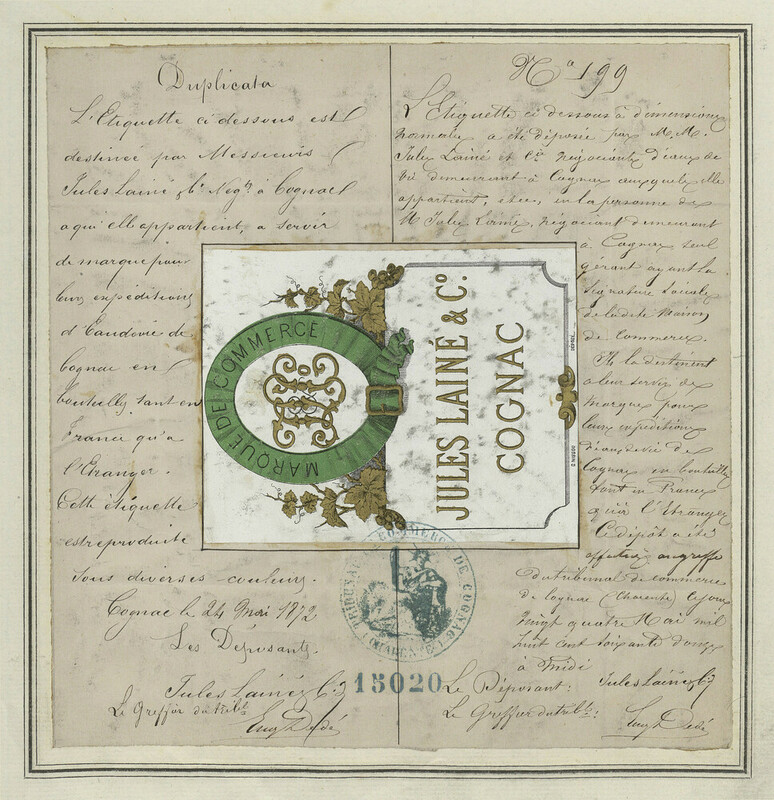 Duplicata
L'Etiquette ci dessous est
destinée par Messieurs
Jules Lainé & Cie Negts à Cognac
a qui elle appartient, a servir
de marque pour
leurs expéditions
d'Eaudevie de
Cognac en
bouteilles tant en
France qu'a
l'Etranger.
Cette étiquette
est reproduite
sous diverses couleurs.
Cognac le 24 Mai 1872
Les Déposants.
Jules Lainé & Cie
Le Greffier du trible
Eug Dedé
No 199
L'Etiquette ci dessous à dimensions
normales a été déposée par M.M.
Jules Lainé et Cie négociants d'eaux de
vie demeurant à Cognac auxquels elle
appartient, etce, en la personne de
M Jules Lainé, négociant demeurant
à Cognac seul
gérant ayant la
signature sociale
de la dite Maison
de Commerce.
Ils la destinent
a leur servir de
marque pour
leurs expéditions
d'eaudevie de
Cognac en bouteilles
tant en France
qu'à l'Etranger
Ce dépôt a été
effectué au greffe
du tribunal de commerce
de Cognac (Charente) ce jour
vingt quatre Mai mil
huit cent soixante douze
à midi
Le Déposant: Jules Lainé & Cie
Le Greffier du trible:
Eug Dedé
MARQUE DE COMMERCE
JULES LAINÉ & Co.
COGNAC
COMMERCE DE COGNAC
15020